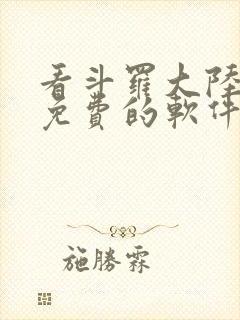 看斗羅大陸
免費的軟件
施勝霖